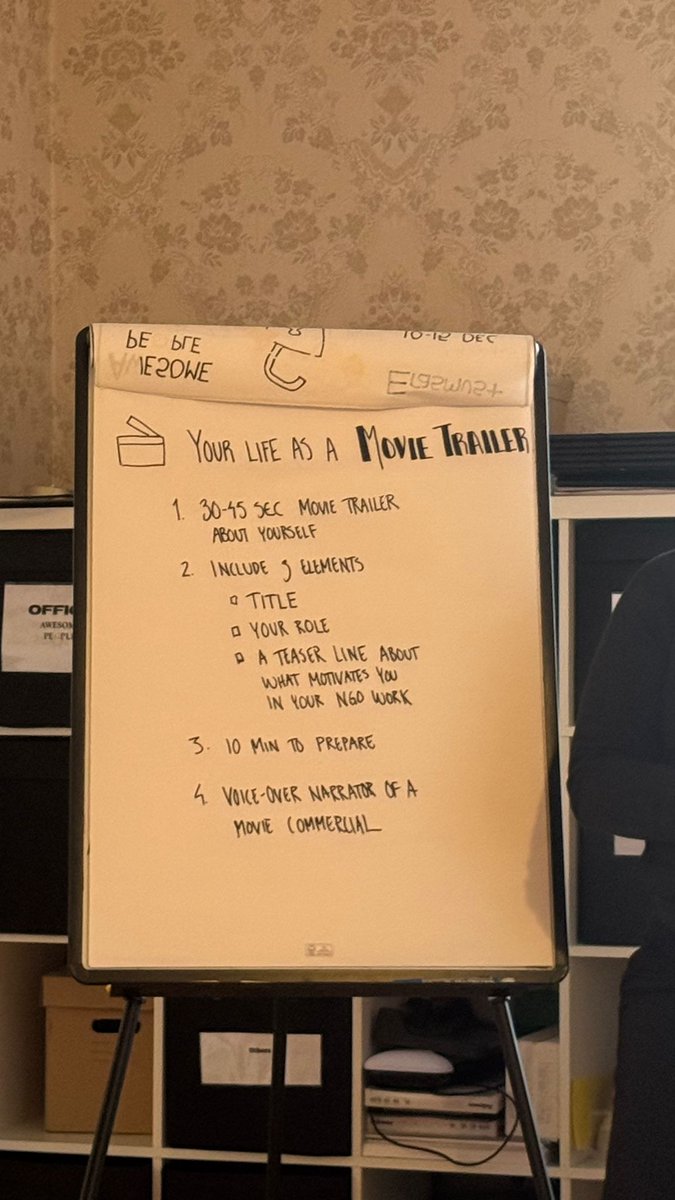 10-12 DEC
Erasmus+
AWESOME
YOUR LIFE AS A MOVIE TRAILER
1. 30-45 SEC MOVIE TRAILER
ABOUT YOURSELF
2. INCLUDE 3 ELEMENTS
TITLE
YOUR ROLE
A TEASER LINE ABOUT
WHAT MOTIVATES YOU
IN YOUR NGO WORK
3. 10 MIN TO PREPARE
4. VOICE-OVER NARRATOR OF A
MOVIE COMMERCIAL
OFFIC
AWESOM
PEOPLE
Others